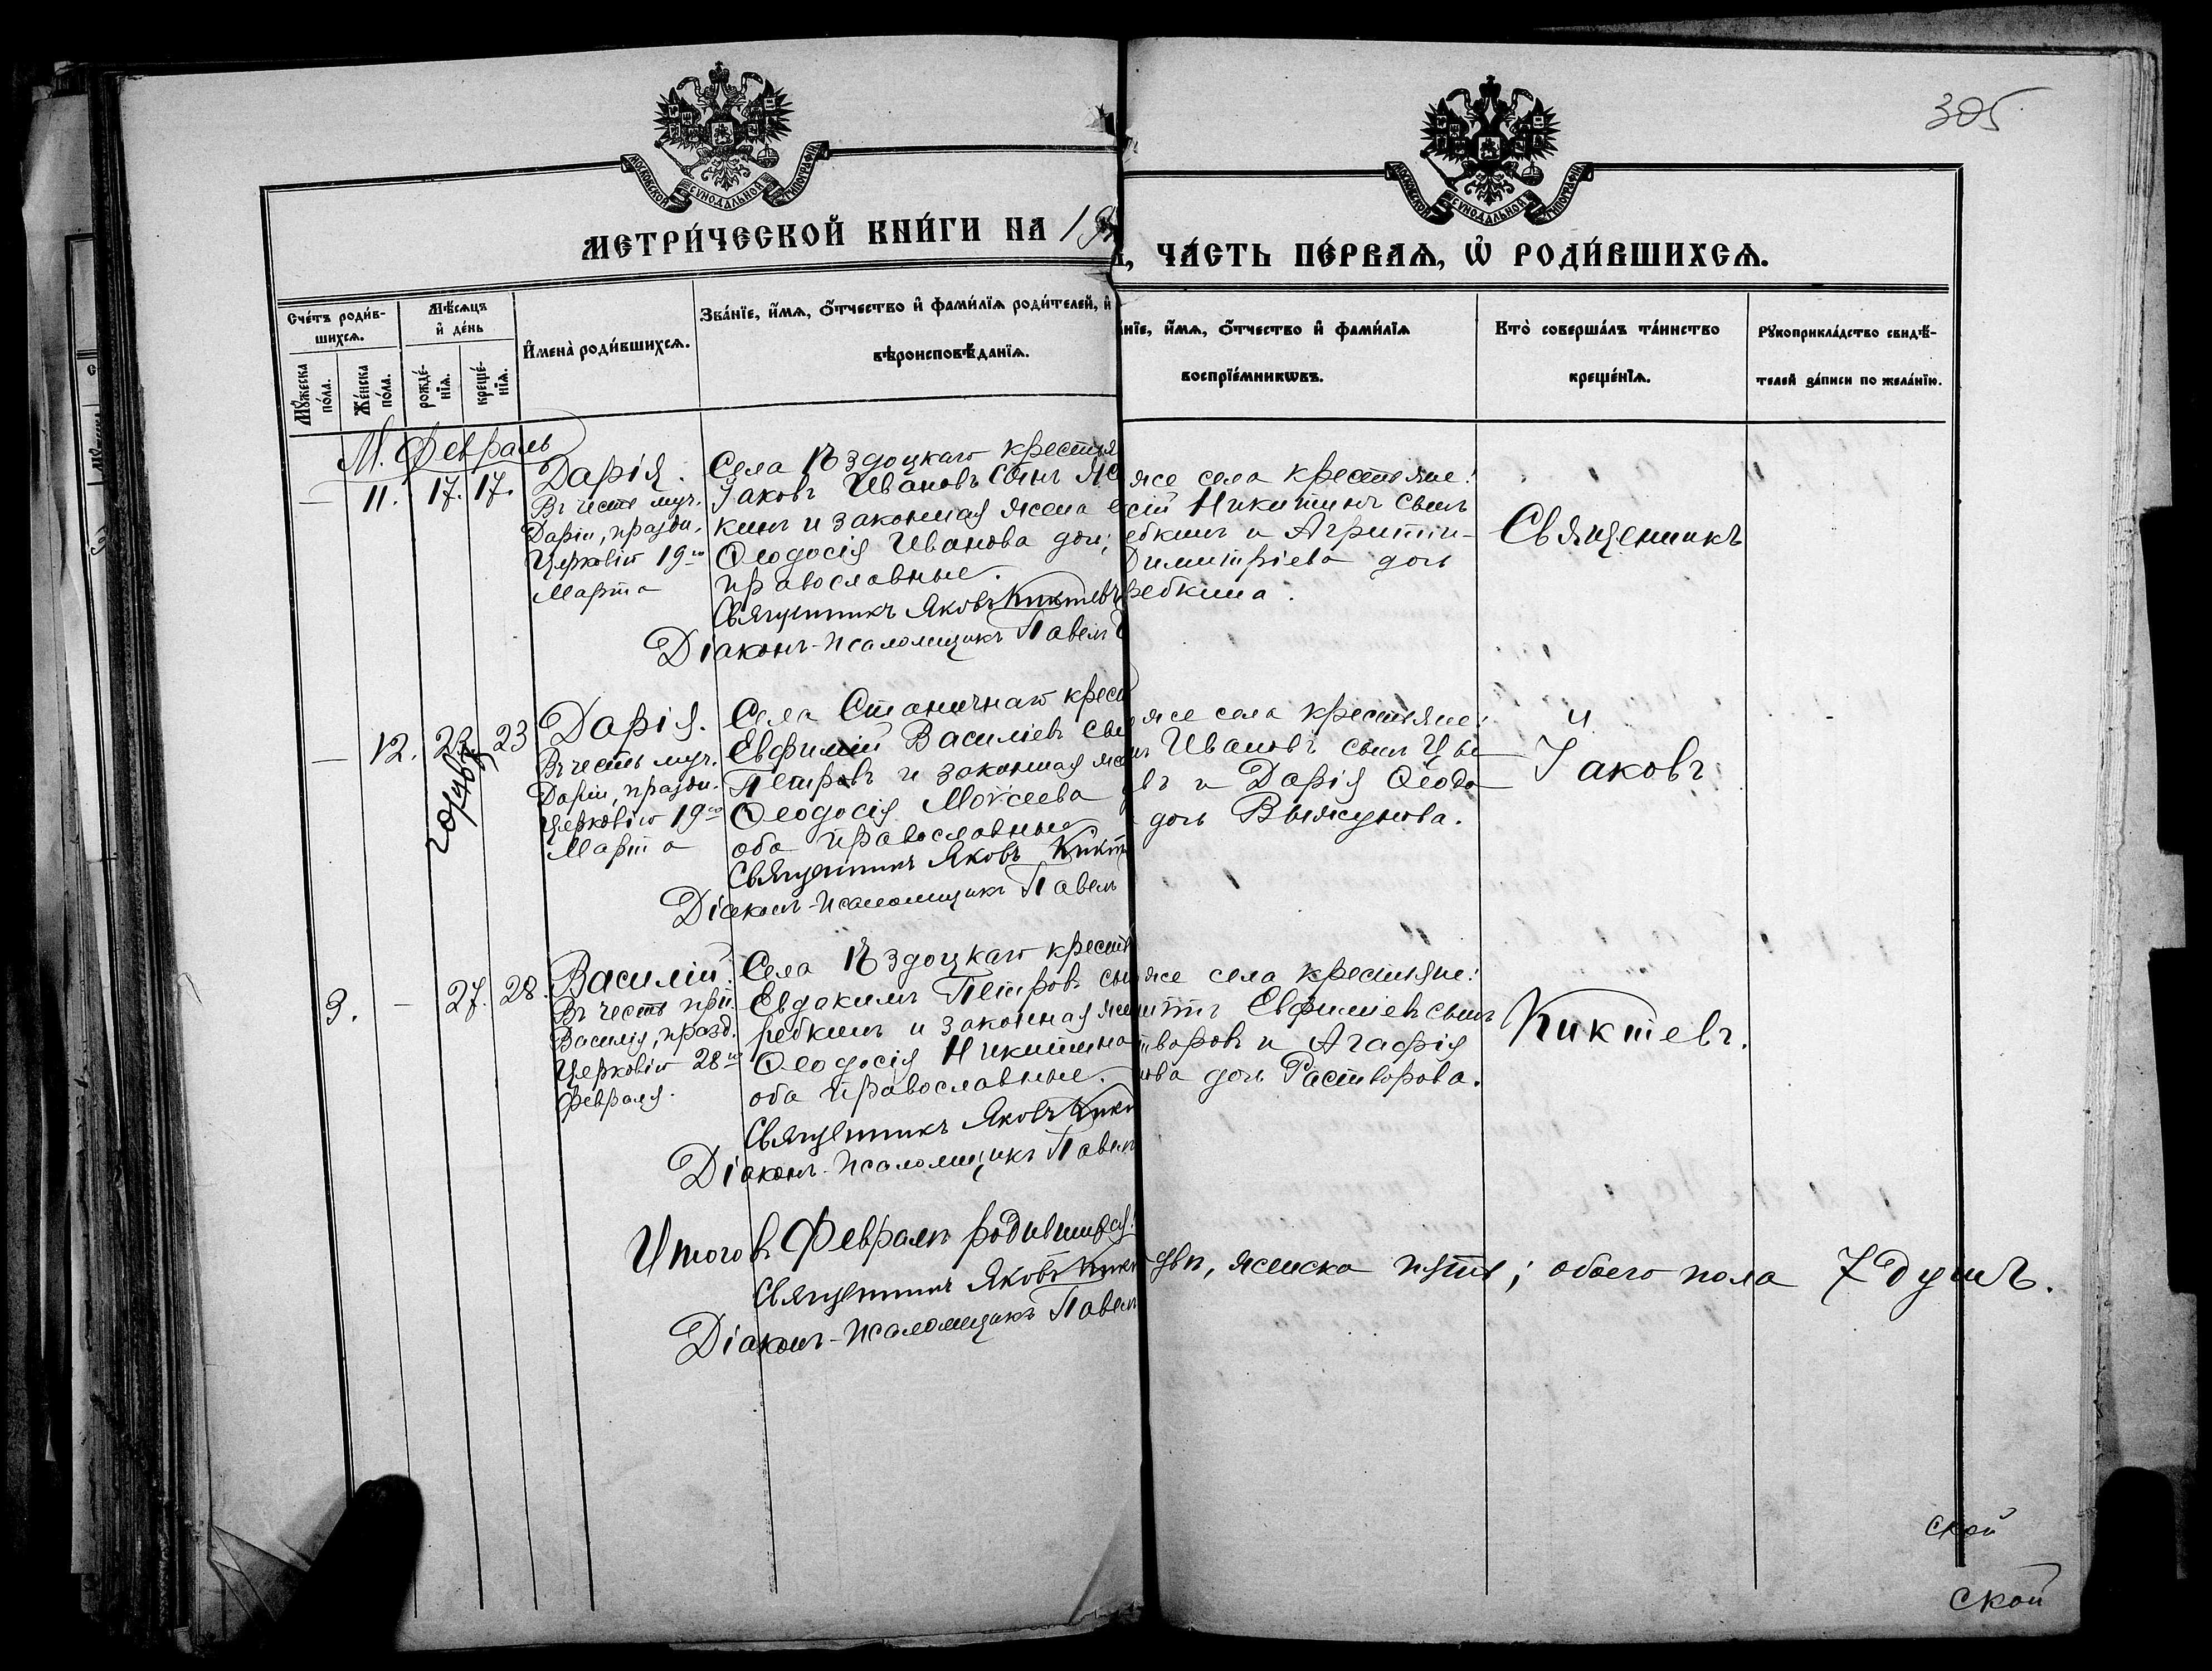 305
МОСКОВСКОЙ СѴНОДАЛЬНОЙ ТИПОГРАФІИ
МОСКОВСКОЙ СѴНОДАЛЬНОЙ ТИПОГРАФІИ
МЕТРИ́ЧЕСКОЙ КНИ́ГИ НА 19
ЧА́СТЬ ПЕ́РВАѦ, Ѡ҆ РОДИ́ВШИХСѦ.
Сче́тъ роди́в-
шихсѧ.
Мꙋ́жеска по́ла.
Же́нска по́ла.
Мѣ́сѧцъ и҆ де́нь
рожде́-нїѧ.
креще́-нїѧ.
И҆мена̀ роди́вшихсѧ.
Зва́нїе, и҆́мѧ, ѻ҆́тчество и҆ фами́лїѧ роди́телей, и҆
вѣроисповѣ́данїѧ.
а́нїе, и҆́мѧ, ѻ҆́тчество и҆ фами́лїѧ
воспрїе́мникѡвъ.
Кто̀ соверша́лъ та́инство
креще́нїѧ.
Рꙋкоприкла́дство свидѣ́-
телей за́писи по жела́нїю.
М. Февраль
— 11. 17. 17.
Дарія.
Въ честь муч.
Даріи, праздн.
Церковію 19го
Марта
Села Ѣздоцкаго крестья
Іаковъ Ивановъ сынъ Яс
кинъ и законная жена е
Ѳеодосія Иванова доч;
православные.
Священникъ Яковъ Киктевъ
Діаконъ-псаломщикъ Павелъ
же села крестьяне:
сій Никитинъ сынъ
ебкинъ и Агриппи-
Димитріева дочь
ребкина.
Священникъ
— 12. 22 23
голубъ
Дарія.
Въ честь муч.
Даріи, праздн.
Церковію 19го
Марта
Села Станичнаго крест
Евфимій Василіевъ сы
Петровъ и законная же
Ѳеодосія Моѵсеева
оба православные
Священникъ Яковъ Кикт
Діаконъ-псаломщикъ Павелъ
же села крестьяне:
нъ Ивановъ сынъ Цве
въ и Дарія Ѳеодо
дочь Выжунова.
и
Іаковъ
3. — 27. 28.
Василій.
Въ честь прп.
Василія, празд.
Церковію 28го
Февраля.
Села Ѣздоцкаго кресть
Евдокимъ Петровъ сын
ребкинъ и законная же
Ѳеодосія Никитина
оба православные.
Священникъ Яковъ Кик
Діаконъ-псаломщикъ Павелъ
же села крестьяне:
иттъ Евфиміевъ сынъ
творовъ и Агафія
ова дочь Растворова.
Киктевъ.
Итого въ Февралѣ родившихся:
двѣ, женска пять; обоего пола 7 душъ.
Священникъ Яковъ Кикт
Діаконъ-псаломщикъ Павелъ
ской
ской